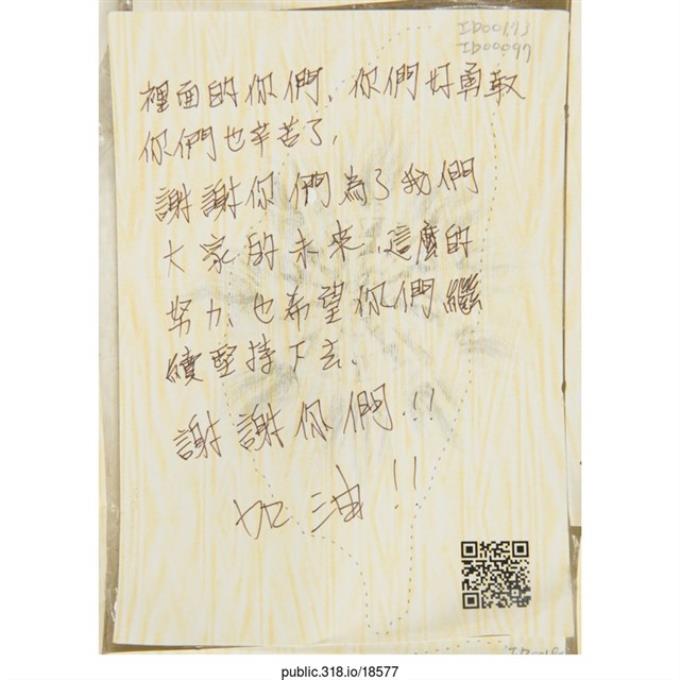 ID00173
ID00097
裡面的你們、你們好勇敢
你們也辛苦了,
謝謝你們為了我們
大家的未來,這麼的
努力、也希望你們繼
續堅持下去、
謝謝你們!!
加油!!
public.318.io/18577